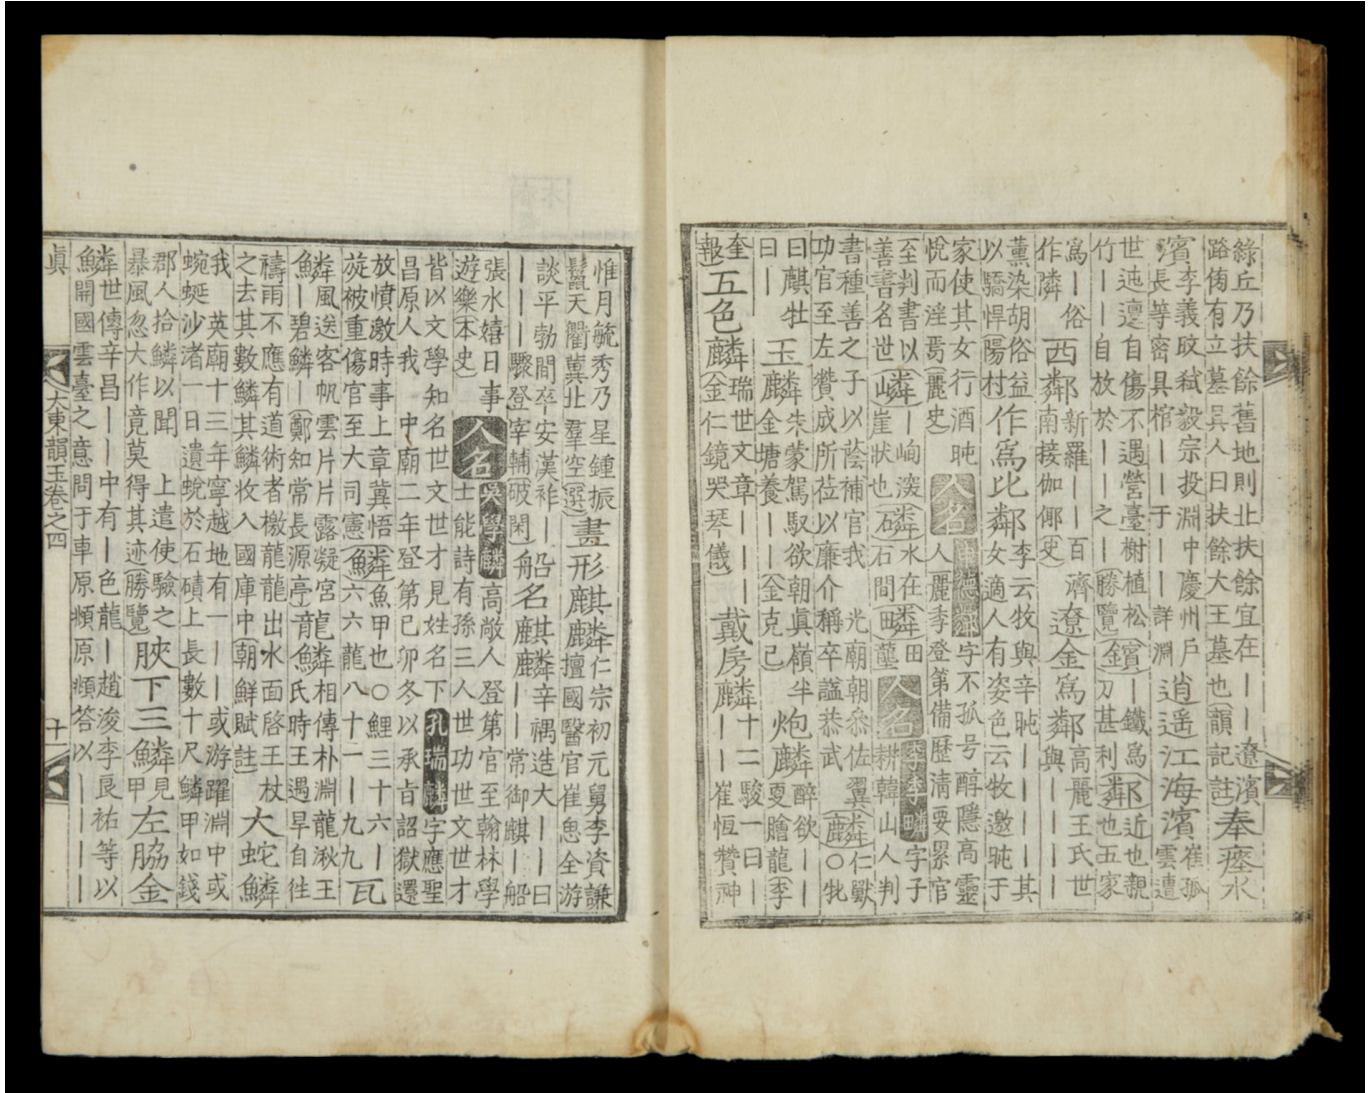 綠丘乃扶餘舊地則北扶餘宜在丨丨遼濱
路傍有立墓吳人曰扶餘大王墓也韻記註奉瘞水
濱李義旼弑毅宗投淵中慶州戶
長等密具棺丨丨于丨丨詳淵逍遙江海濱崔孤雲遭
世迍邅自傷不遇營臺榭植松
竹丨丨自放於丨丨之丨勝覽鑌丨鐵爲刀甚利鄰近也親也五家
爲丨俗作隣西鄰新羅丨丨百濟南接伽倻史遼金爲鄰高麗王氏世與丨丨丨丨
薰染胡俗益
以驕悍陽村作爲比鄰李云牧與辛旽丨丨丨其女適人有姿色云牧邀旽于
家使其女行酒旽
悅而淫焉麗史人名申德鄰字不孤号醇隱高靈人麗季登第備歷淸要累官
至判書以
善書名世嶙丨峋崖狀也磷水在石間疄田壟人名李李疄字子耕韓山人判
書種善之子以蔭補官我 光廟朝叅佐翼
功官至左贊成所莅以廉介稱卒諡恭武麟仁獸麤〇牝
曰麒牡曰丨玉麟朱蒙駕馭欲朝眞嶺半金塘養丨丨金克己炮麟醉欲丨丨戛膾龍李
奎報五色麟瑞世文章丨丨丨金仁鏡哭琴儀戴房麟十二駿一曰丨丨丨崔恆贊神
惟月毓秀乃星鍾振
鬣天衢冀北羣空選畫形麒麟仁宗初元舅李資謙擅國醫官崔思全游
談平勃間卒安漢祚丨
丨丨驟登宰輔破閑船名麒麟辛禑造大丨丨曰丨丨常御麒丨船
張水嬉日事
遊樂本史人名吳學麟高敞人登第官至翰林學士能詩有孫三人世功世文世才
皆以文學知名世文世才見姓名下孔瑞麟字應聖
昌原人我 中廟二年登第已卯冬以承旨詔獄還
放憤激時事上章冀悟
旋被重傷官至大司憲鱗魚甲也〇鯉三十六丨魚六六龍八十一丨九九瓦
鱗風送客帆雲片片露凝宮
魚丨碧鱗丨鄭知常長源亭龍鱗相傳朴淵龍湫王氏時王遇旱自往
禱雨不應有道術者檄龍龍出水面啓王杖
之去其數鱗其鱗收入國庫中朝鮮賦註大蛇鱗
我 英廟十三年寧越地有一丨或游躍淵中或
蜿蜒沙渚一日遺蛻於石磧上長數十尺鱗甲如錢
郡人拾鱗以聞 上遣使驗之
暴風忽大作竟莫得其迹勝覽腋下三鱗見甲左脇金
鱗世傳辛昌丨丨中有丨色龍丨趙浚李良祐等以
魚開國雲臺之意問于車原頫原頫答以丨丨丨丨
眞
大東韻玉卷之四
十一